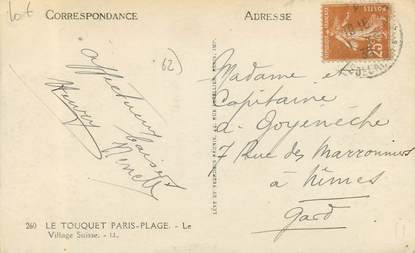 Lot
CORRESPONDANCE
ADRESSE
25c
62
affectueux
baisers
Henry
Madame et
Capitaine
A. Goyenèche
7 Rue des Marronniers
à Nîmes
Gard
260 LE TOUQUET PARIS-PLAGE. - Le
Village Suisse. - LL.